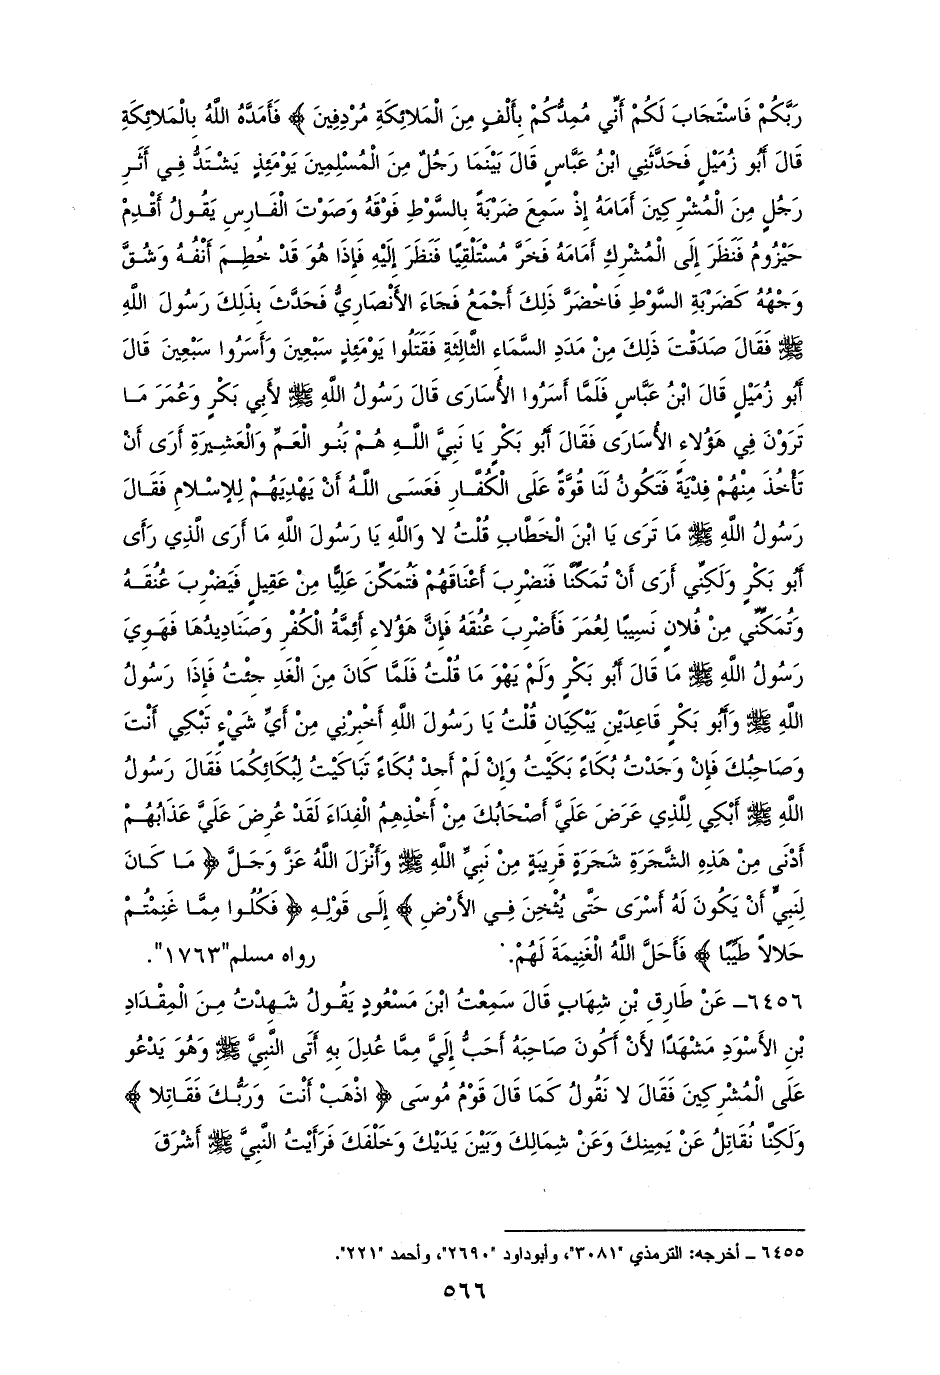 رَبَّكُمْ فَاسْتَجَابَ لَكُمْ أَنِّي مُمِدُّكُمْ بِأَلْفٍ مِنَ الْمَلائِكَةِ مُرْدِفِينَ ﴾ فَأَمَدَّهُ اللَّهُ بِالْمَلائِكَةِ
قَالَ أَبُو زُمَيْلٍ فَحَدَّثَنِي ابْنُ عَبَّاسٍ قَالَ بَيْنَمَا رَجُلٌ مِنَ الْمُسْلِمِينَ يَوْمَئِذٍ يَشْتَدُّ فِي أَثَرِ
رَجُلٍ مِنَ الْمُشْرِكِينَ أَمَامَهُ إِذْ سَمِعَ ضَرْبَةً بِالسَّوْطِ فَوْقَهُ وَصَوْتَ الْفَارِسِ يَقُولُ أَقْدِمْ
حَيْزُومُ فَنَظَرَ إِلَى الْمُشْرِكِ أَمَامَهُ فَخَرَّ مُسْتَلْقِيًا فَنَظَرَ إِلَيْهِ فَإِذَا هُوَ قَدْ خُطِمَ أَنْفُهُ وَشُقَّ
وَجْهُهُ كَضَرْبَةِ السَّوْطِ فَاخْضَرَّ ذَلِكَ أَجْمَعُ فَجَاءَ الأَنْصَارِيُّ فَحَدَّثَ بِذَلِكَ رَسُولَ اللَّهِ
ﷺ فَقَالَ صَدَقْتَ ذَلِكَ مِنْ مَدَدِ السَّمَاءِ الثَّالِثَةِ فَقَتَلُوا يَوْمَئِذٍ سَبْعِينَ وَأَسَرُوا سَبْعِينَ قَالَ
أَبُو زُمَيْلٍ قَالَ ابْنُ عَبَّاسٍ فَلَمَّا أَسَرُوا الأُسَارَى قَالَ رَسُولُ اللَّهِ ﷺ لأَبِي بَكْرٍ وَعُمَرَ مَا
تَرَوْنَ فِي هَؤُلاءِ الأُسَارَى فَقَالَ أَبُو بَكْرٍ يَا نَبِيَّ اللَّهِ هُمْ بَنُو الْعَمِّ وَالْعَشِيرَةِ أَرَى أَنْ
تَأْخُذَ مِنْهُمْ فِدْيَةً فَتَكُونُ لَنَا قُوَّةً عَلَى الْكُفَّارِ فَعَسَى اللَّهُ أَنْ يَهْدِيَهُمْ لِلإِسْلامِ فَقَالَ
رَسُولُ اللَّهِ ﷺ مَا تَرَى يَا ابْنَ الْخَطَّابِ قُلْتُ لا وَاللَّهِ يَا رَسُولَ اللَّهِ مَا أَرَى الَّذِي رَأَى
أَبُو بَكْرٍ وَلَكِنِّي أَرَى أَنْ تُمَكِّنَّا فَنَضْرِبَ أَعْنَاقَهُمْ فَتُمَكِّنَ عَلِيًّا مِنْ عَقِيلٍ فَيَضْرِبَ عُنُقَهُ
وَتُمَكِّنِّي مِنْ فُلانٍ نَسِيبًا لِعُمَرَ فَأَضْرِبَ عُنُقَهُ فَإِنَّ هَؤُلاءِ أَئِمَّةُ الْكُفْرِ وَصَنَادِيدُهَا فَهَوِيَ
رَسُولُ اللَّهِ ﷺ مَا قَالَ أَبُو بَكْرٍ وَلَمْ يَهْوَ مَا قُلْتُ فَلَمَّا كَانَ مِنَ الْغَدِ جِئْتُ فَإِذَا رَسُولُ
اللَّهِ ﷺ وَأَبُو بَكْرٍ قَاعِدَيْنِ يَبْكِيَانِ قُلْتُ يَا رَسُولَ اللَّهِ أَخْبِرْنِي مِنْ أَيِّ شَيْءٍ تَبْكِي أَنْتَ
وَصَاحِبُكَ فَإِنْ وَجَدْتُ بُكَاءً بَكَيْتُ وَإِنْ لَمْ أَجِدْ بُكَاءً تَبَاكَيْتُ لِبُكَائِكُمَا فَقَالَ رَسُولُ
اللَّهِ ﷺ أَبْكِي لِلَّذِي عَرَضَ عَلَيَّ أَصْحَابُكَ مِنْ أَخْذِهِمُ الْفِدَاءَ لَقَدْ عُرِضَ عَلَيَّ عَذَابُهُمْ
أَدْنَى مِنْ هَذِهِ الشَّجَرَةِ شَجَرَةٍ قَرِيبَةٍ مِنْ نَبِيِّ اللَّهِ ﷺ وَأَنْزَلَ اللَّهُ عَزَّ وَجَلَّ ﴿ مَا كَانَ
لِنَبِيٍّ أَنْ يَكُونَ لَهُ أَسْرَى حَتَّى يُثْخِنَ فِي الأَرْضِ ﴾ إِلَى قَوْلِهِ ﴿ فَكُلُوا مِمَّا غَنِمْتُمْ
حَلالاً طَيِّبًا ﴾ فَأَحَلَّ اللَّهُ الْغَنِيمَةَ لَهُمْ. رواه مسلم"١٧٦٣".
٦٤٥٦ـ عَنْ طَارِقِ بْنِ شِهَابٍ قَالَ سَمِعْتُ ابْنَ مَسْعُودٍ يَقُولُ شَهِدْتُ مِنَ الْمِقْدَادِ
بْنِ الأَسْوَدِ مَشْهَدًا لأَنْ أَكُونَ صَاحِبَهُ أَحَبُّ إِلَيَّ مِمَّا عُدِلَ بِهِ أَتَى النَّبِيَّ ﷺ وَهُوَ يَدْعُو
عَلَى الْمُشْرِكِينَ فَقَالَ لا نَقُولُ كَمَا قَالَ قَوْمُ مُوسَى ﴿ اذْهَبْ أَنْتَ وَرَبُّكَ فَقَاتِلا ﴾
وَلَكِنَّا نُقَاتِلُ عَنْ يَمِينِكَ وَعَنْ شِمَالِكَ وَبَيْنَ يَدَيْكَ وَخَلْفَكَ فَرَأَيْتُ النَّبِيَّ ﷺ أَشْرَقَ
٦٤٥٥ ـ أخرجه: الترمذي "٣٠٨١"، وأبوداود "٢٦٩٠"، وأحمد "٢٢١".
٥٦٦